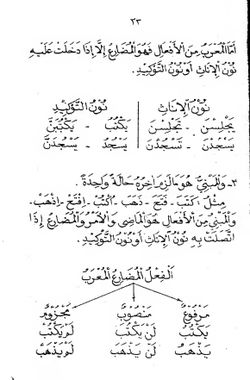 ٢٣
أَمَّا الْمُعْرَبُ مِنَ الْأَفْعَالِ فَهُوَ الْمُضَارِعُ إِلَّا إِذَا دَخَلَتْ عَلَيْهِ
نُوْنُ الْإِنَاثِ أَوْ نُوْنُ التَّوْكِيْدِ
نُوْنُ الْإِنَاثِ نُوْنُ التَّوْكِيْدِ
يَجْلِسْنَ - تَجْلِسْنَ يَكْتُبُ - يَكْتُبَنَّ
يَسْجُدْنَ - تَسْجُدْنَ يَسْجُدُ - يَسْجُدَنَّ
٣- وَالْمَبْنِيُّ هُوَ مَا لَزِمَ آخِرُهُ حَالَةً وَاحِدَةً.
مِثْلُ: كَتَبَ - فَتَحَ - ذَهَبَ. أُكْتُبْ - اِفْتَحْ - اِذْهَبْ.
وَالْمَبْنِيُّ مِنَ الْأَفْعَالِ هُوَ الْمَاضِى وَالْأَمْرُ وَالْمُضَارِعُ إِذَا
اتَّصَلَتْ بِهِ نُوْنُ الْإِنَاثِ أَوْ نُوْنُ التَّوْكِيْدِ.
اَلْفِعْلُ الْمُضَارِعُ الْمُعْرَبُ
مَرْفُوْعٌ مَنْصُوْبٌ مَجْزُوْمٌ
يَكْتُبُ لَنْ يَكْتُبَ لَمْ يَكْتُبْ
يَذْهَبُ لَنْ يَذْهَبَ لَمْ يَذْهَبْ